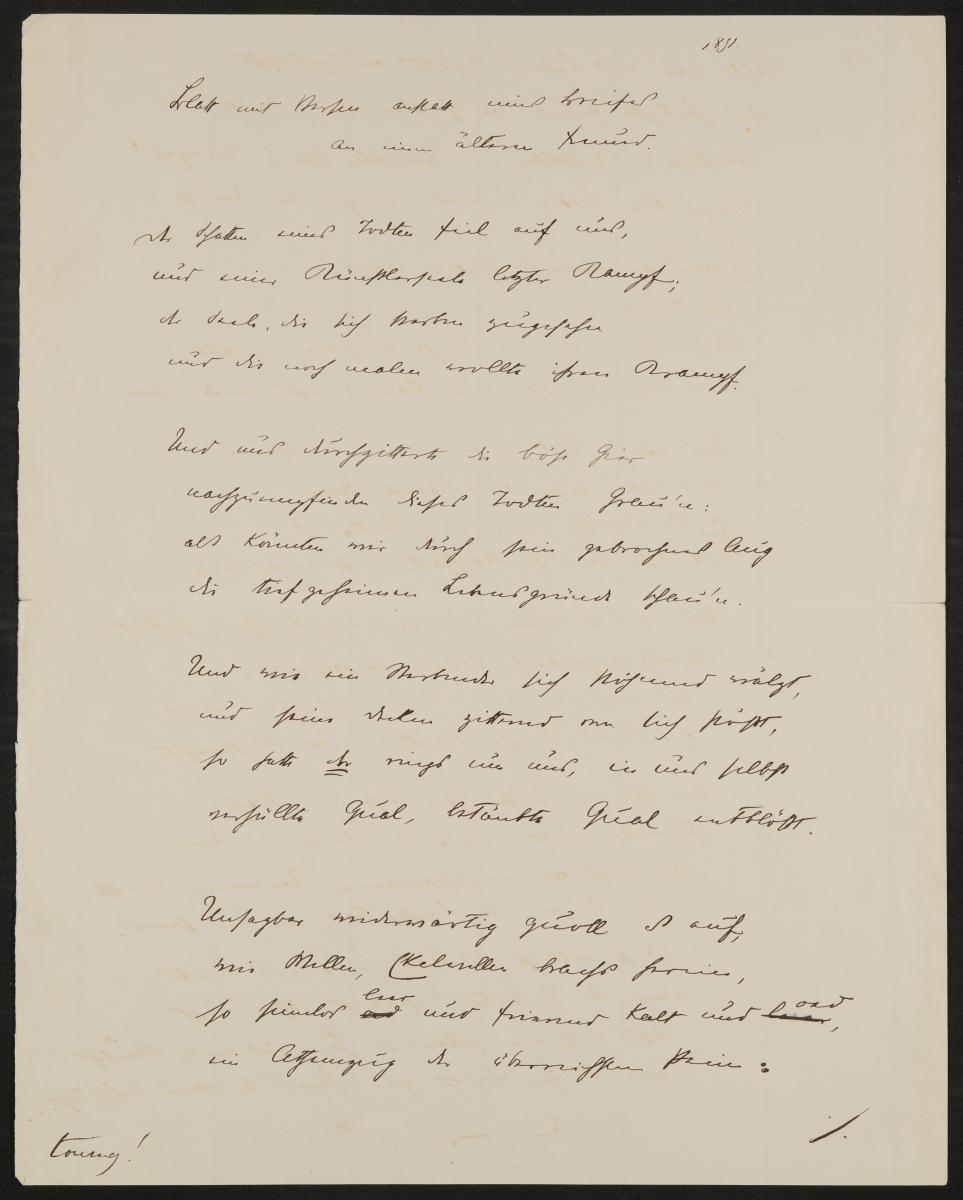 1891.
Blatt mit Versen anstatt eines Briefes
an einen ältern Freund.
der Schatten eines Todten fiel auf uns,
und einer Künstlerseele letzter Kampf;
der Seele, die sich sterben zugesehn
und die noch malen wollte ihren Krampf.
Und uns durchzitterte die böse Gier
nachzuempfinden dieses Todten Grau'n:
als könnten wir durch sein gebrochnes Aug
die tiefgeheimen Lebensgründe schau'n.
Und wie ein Sterbender sich stöhnend wälzt,
und seine Decken zitternd von sich stößt,
so hatte der rings um uns, in uns selbst
verhüllte Qual, betäubte Qual entblößt.
Unsagbar widerwärtig quoll es auf,
wie Wellen, Ekelwellen brach's herein,
so sinnlos leer und frierend kalt und oed,
ein Athemzug der überreichten Pein:
Tourney!